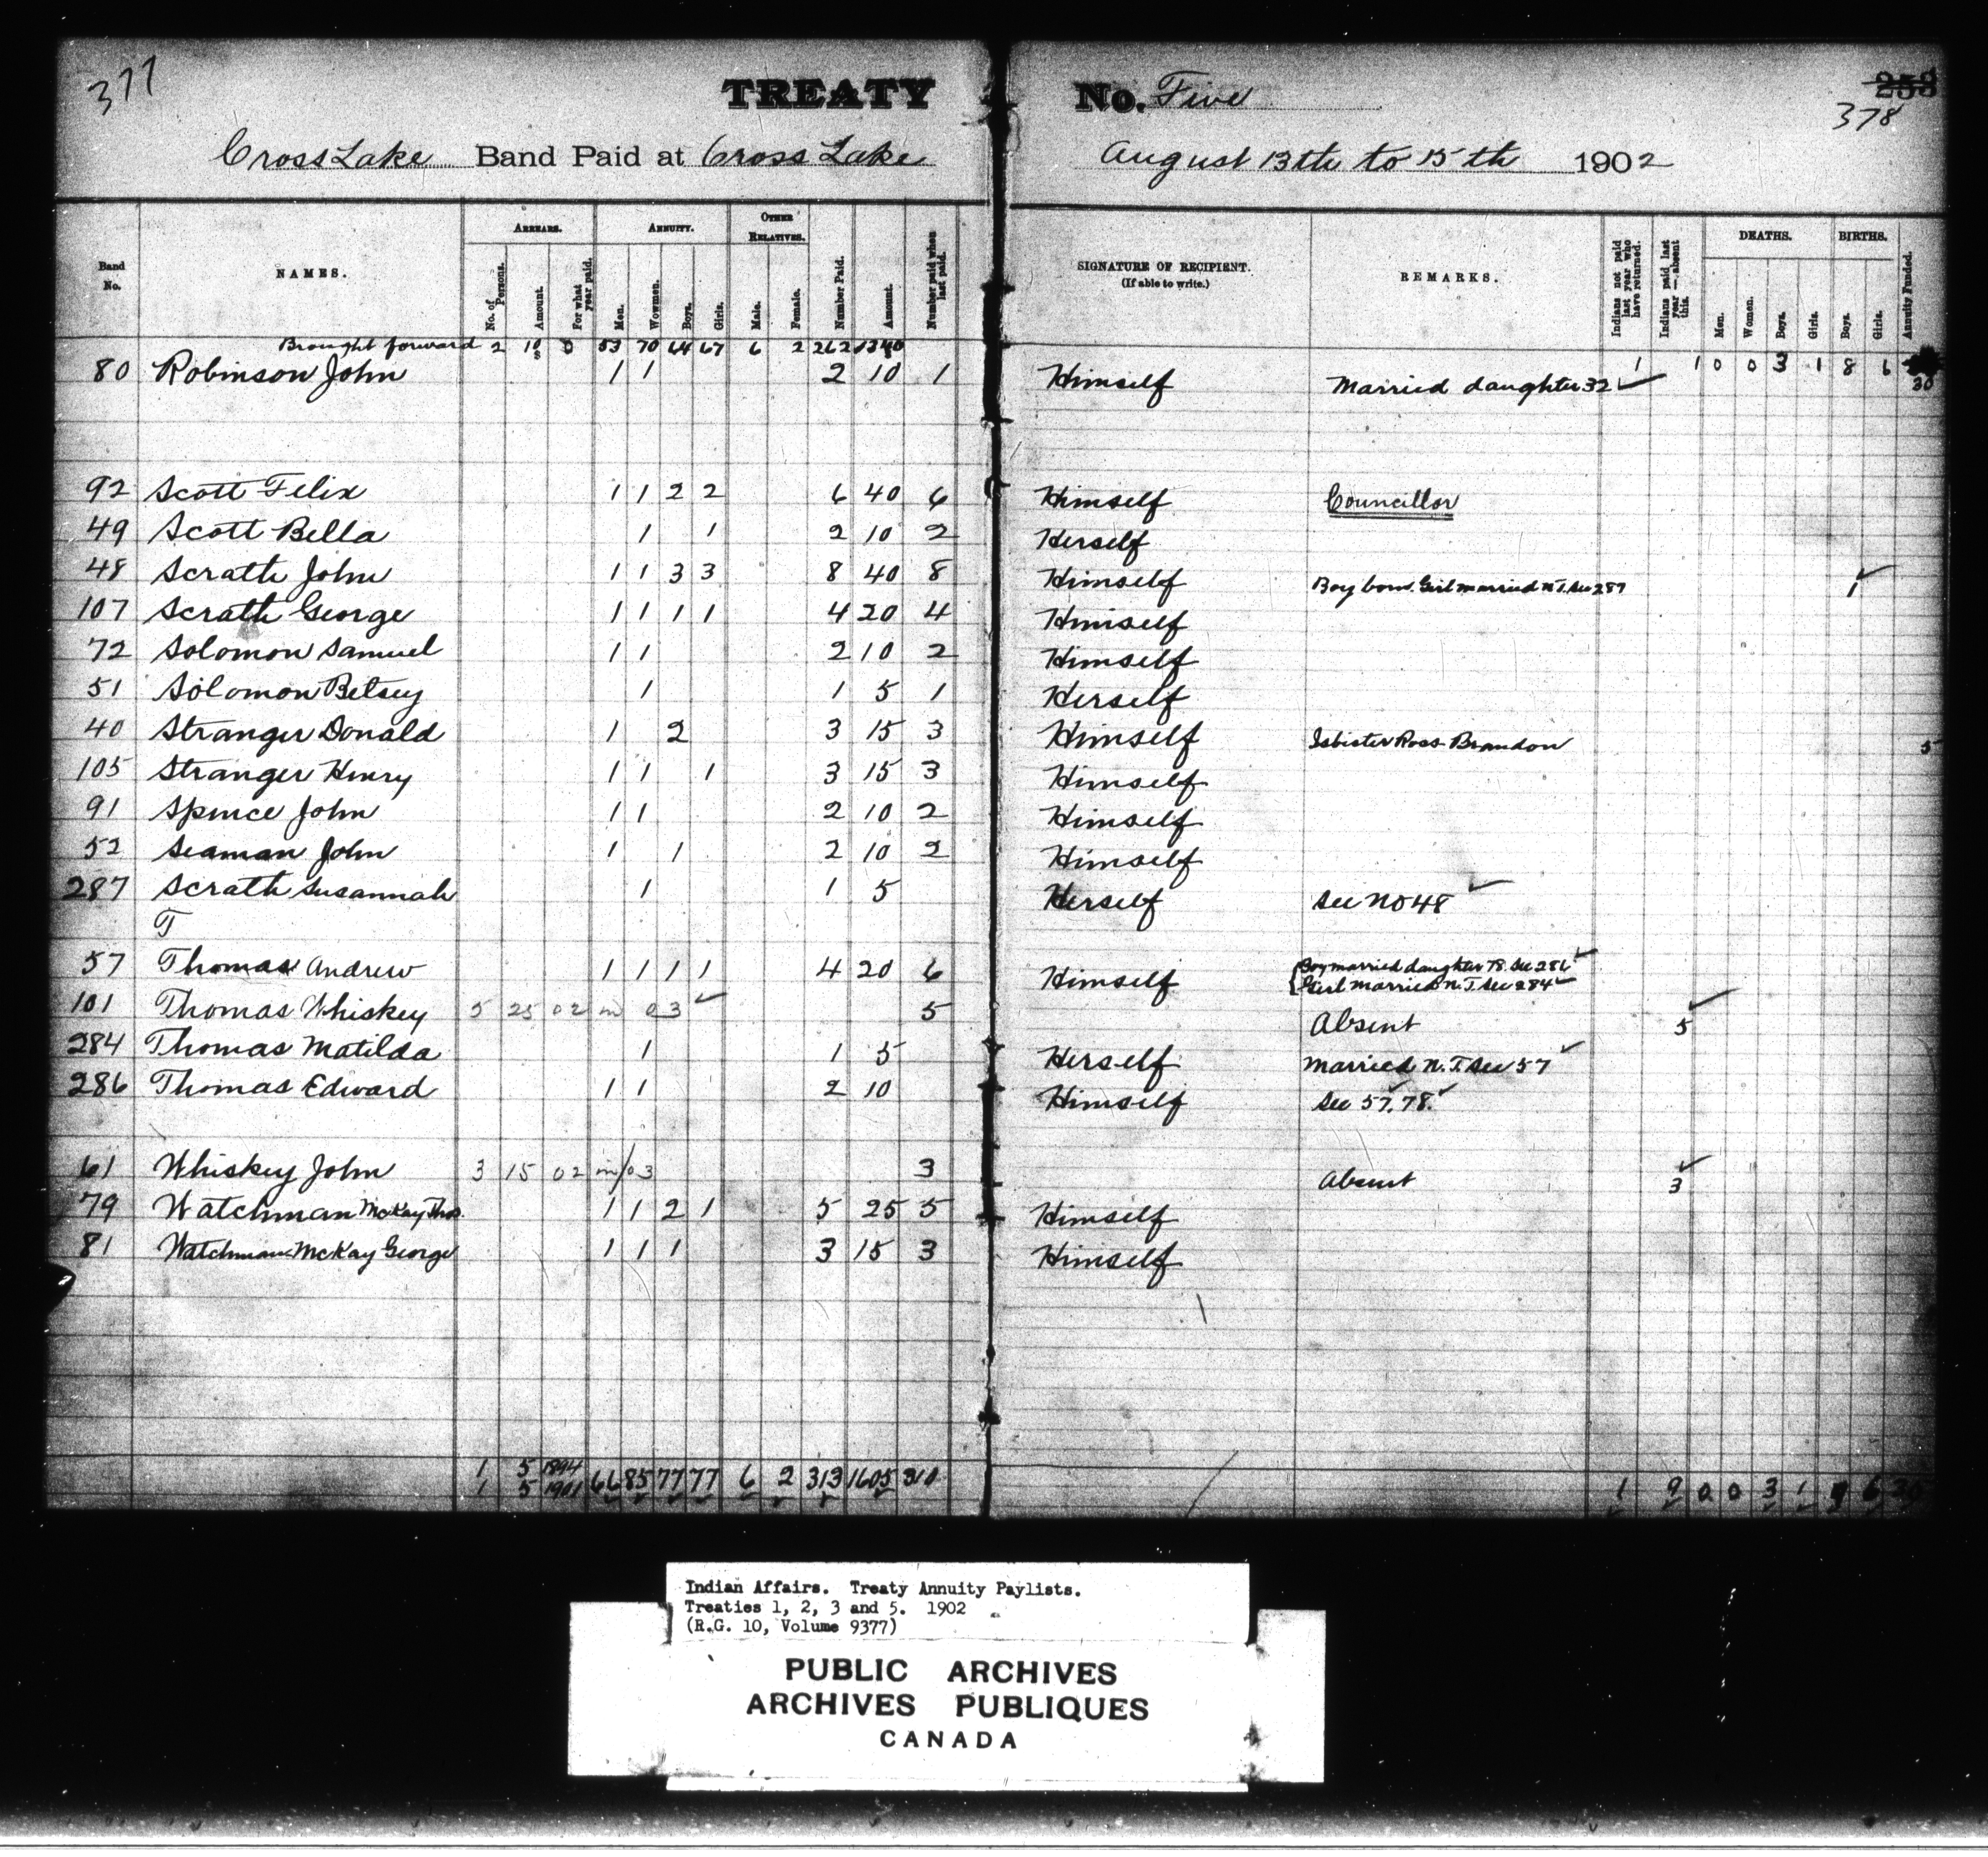 377
TREATY No. Five
253
378
Cross Lake Band Paid at Cross Lake August 13th to 15th 1902
Band No. NAMES. ARREARS. No. of Persons. Amount. For what year paid. ANNUITY. Men. Wowmen. Boys. Girls. OTHER RELATIVES. Male. Female. Number Paid. Amount. Number paid when last paid. SIGNATURE OF RECIPIENT. (If able to write.) REMARKS. Indians not paid last year who have returned. Indians paid last year—absent this. DEATHS. Men. Women. Boys. Girls. BIRTHS. Boys. Girls. Annuity Funded.
Brought forward 2 10 0 53 70 64 67 6 2 262 1340 1 1 0 0 3 1 8 6 30
80 Robinson John 1 1 2 10 1 Himself Married daughter 32 ✓
92 Scott Felix 1 1 2 2 6 40 6 Himself Councillor
49 Scott Bella 1 1 2 10 2 Herself
48 Scrath John 1 1 3 3 8 40 8 Himself Boy born. Girl married N.T. See 287 1 ✓
107 Scrath George 1 1 1 1 4 20 4 Himself
72 Solomon Samuel 1 1 2 10 2 Himself
51 Solomon Betsey 1 1 5 1 Herself
40 Stranger Donald 1 2 3 15 3 Himself Isbister Ross Brandon 5
105 Stranger Henry 1 1 1 3 15 3 Himself
91 Spence John 1 1 2 10 2 Himself
52 Seaman John 1 1 2 10 2 Himself
287 Scrath Susannah 1 1 5 Herself See No 48 ✓
T
57 Thomas Andrew 1 1 1 1 4 20 6 Himself Boy married daughter 78. See 286 ✓
Girl married N.T. See 284 ✓
101 Thomas Whiskey 5 25 02 in 03 ✓ 5 Absent 5 ✓
284 Thomas Matilda 1 1 5 Herself Married N.T. See 57 ✓
286 Thomas Edward 1 1 2 10 Himself See 57. 78. ✓
61 Whiskey John 3 15 02 in/03 3 Absent 3 ✓
79 Watchman McKay Thos. 1 1 2 1 5 25 5 Himself
81 Watchman McKay George 1 1 1 3 15 3 Himself
1 5 1894
1 5 1901 66 85 77 77 6 2 313 1605 310 1 9 0 0 3 1 9 6 35
Indian Affairs. Treaty Annuity Paylists.
Treaties 1, 2, 3 and 5. 1902
(R.G. 10, Volume 9377)
PUBLIC ARCHIVES
ARCHIVES PUBLIQUES
CANADA